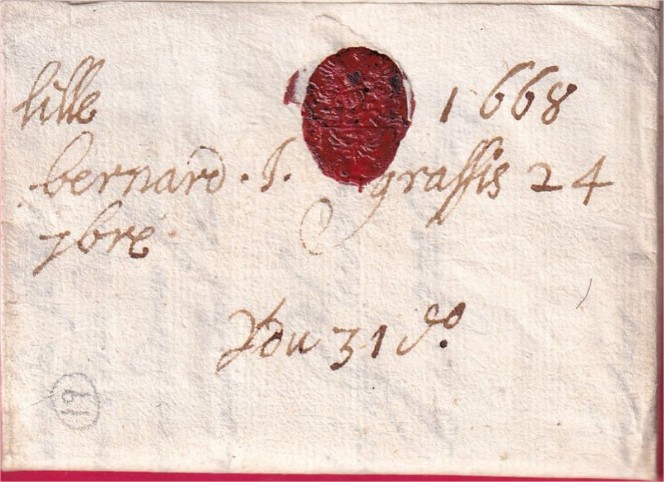 lille 1668
bernard . J. grassis 24
7bre
du 31 do.
19